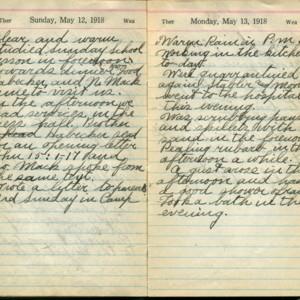 Ther
Sunday, May 12, 1918
Wea
lear and warm
tudied sunday school
esson in forenoon
owards
becker and Mack
ame to visit us.
In the afternoon we
had services in the
ess hall. Brother
Habecker
or an opening letter
John 15:1-17 and
Mack spoke from
the same
rote a letter to parents
3rd sunday in Camp
Ther
Monday, May 13, 1918
Wea
Warm Rain in P.m.
working in the kitchen
to-day.
Were quarrantined
again.
went to the hospital
this evening.
Was scrubing pans
and skillets with
sand in the forenoon
Pealing rubarb in the
afternoon a while.
A gust arose in the
afternoon and had
a good shower of rain
Took a bath in the
evening.